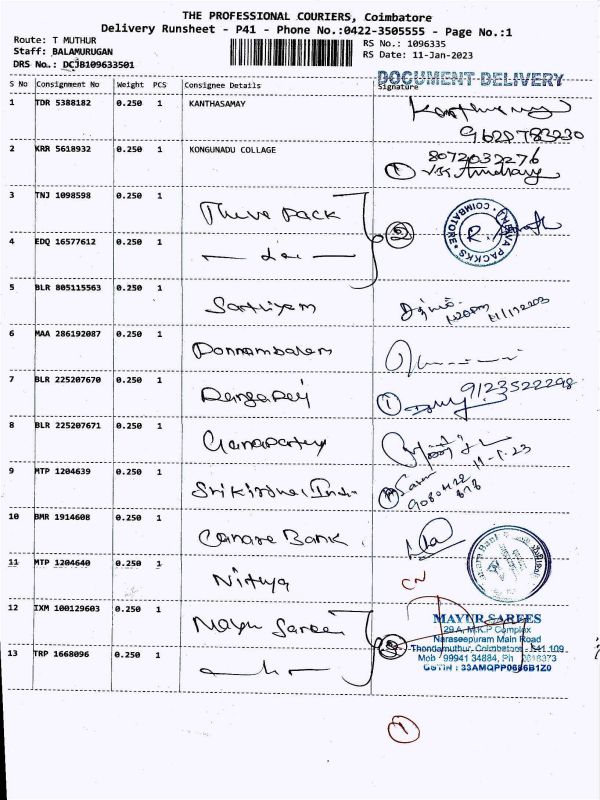 THE PROFESSIONAL COURIERS, Coimbatore
Delivery Runsheet - P41 - Phone No.:0422-3505555 - Page No.:1
Route: T MUTHUR
RS No.: 1096335
Staff: BALAMURUGAN
RS Date: 11-Jan-2023
DRS No.: DCJB109633501
DOCUMENT DELIVERY
S No Consignment No Weight PCS Consignee Details Signature
1 TDR 5388182 0.250 1 KANTHASAMAY
9620783230
2 KRR 5618932 0.250 1 KONGUNADU COLLAGE 8072032276
1
3 TNJ 1098598 0.250 1 Theva pack 2
COIMBATORE
4 EDQ 16577612 0.250 1
5 BLR 805115563 0.250 1 Sathiyam
6 MAA 286192087 0.250 1 Ponnambalam
7 BLR 225207670 0.250 1 Rangaraj 1 9123522298
8 BLR 225207671 0.250 1 Ganapathy
11-1-23
9 MTP 1204639 0.250 1 Sri Krishna
10 BMR 1914608 0.250 1 Canara Bank
11 MTP 1204640 0.250 1 Nithya CN
12 IXM 100129603 0.250 1 Mayu Sarees
MAYUR SAREES
29 A, M.K.P Complex
Naraseepuram Main Road
13 TRP 1668096 0.250 1 2 Thondamuthur, Coimbatore - 641 109
Mob : 99941 34884, Ph
GSTIN : 33AMQPP0686B1Z0
1